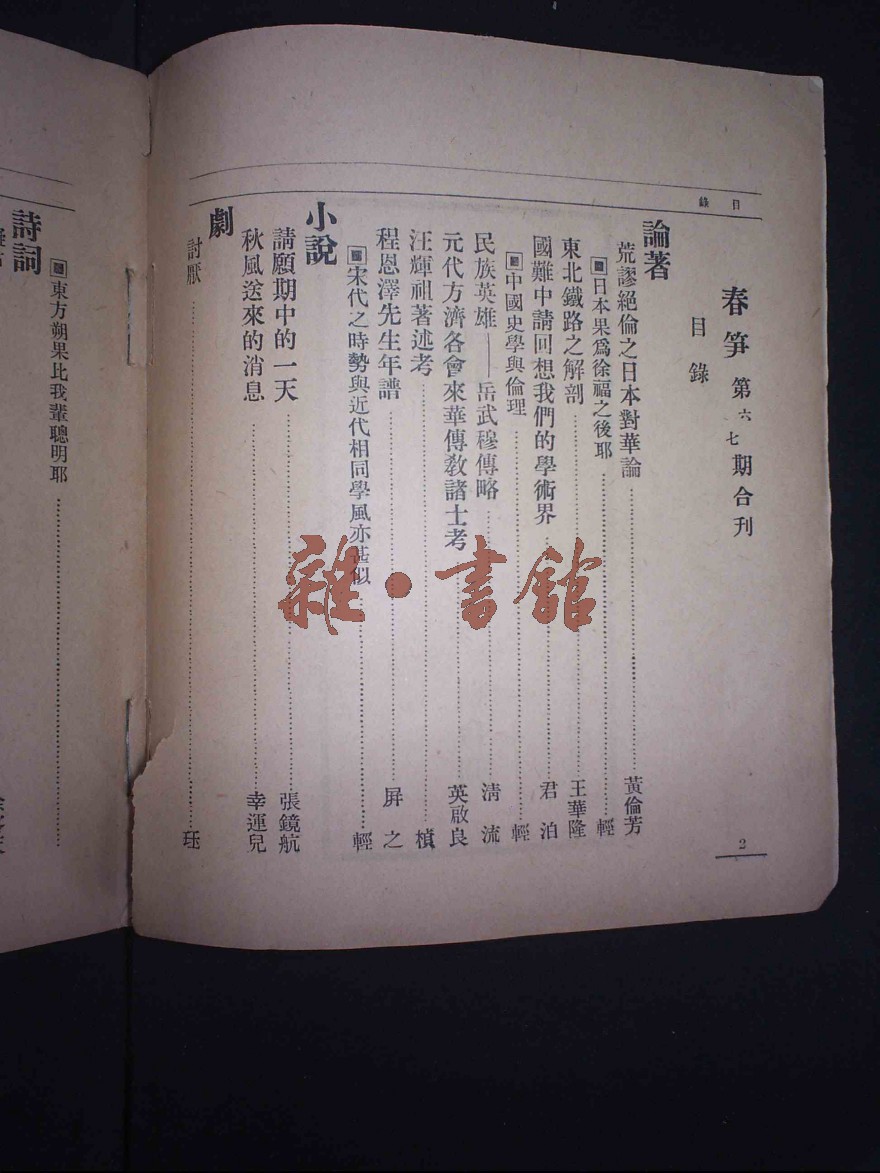 目錄
2
春筍 第六七期合刊
目錄
論著
荒謬絕倫之日本對華論……黃倫芳
日本果為徐福之後耶……輕
東北鐵路之解剖……王華隆
國難中請回想我們的學術界……君泊
中國史學與倫理……輕
民族英雄——岳武穆傳略……清流
元代方濟各會來華傳敎諸士考……英啟良
汪輝祖著述考……楨
程恩澤先生年譜……屏之
宋代之時勢與近代相同學風亦甚似……輕
小說
請願期中的一天……張鏡航
秋風送來的消息……幸運兒
劇
討厭……珏
詩詞
東方朔果比我輩聰明耶……
雜·書館